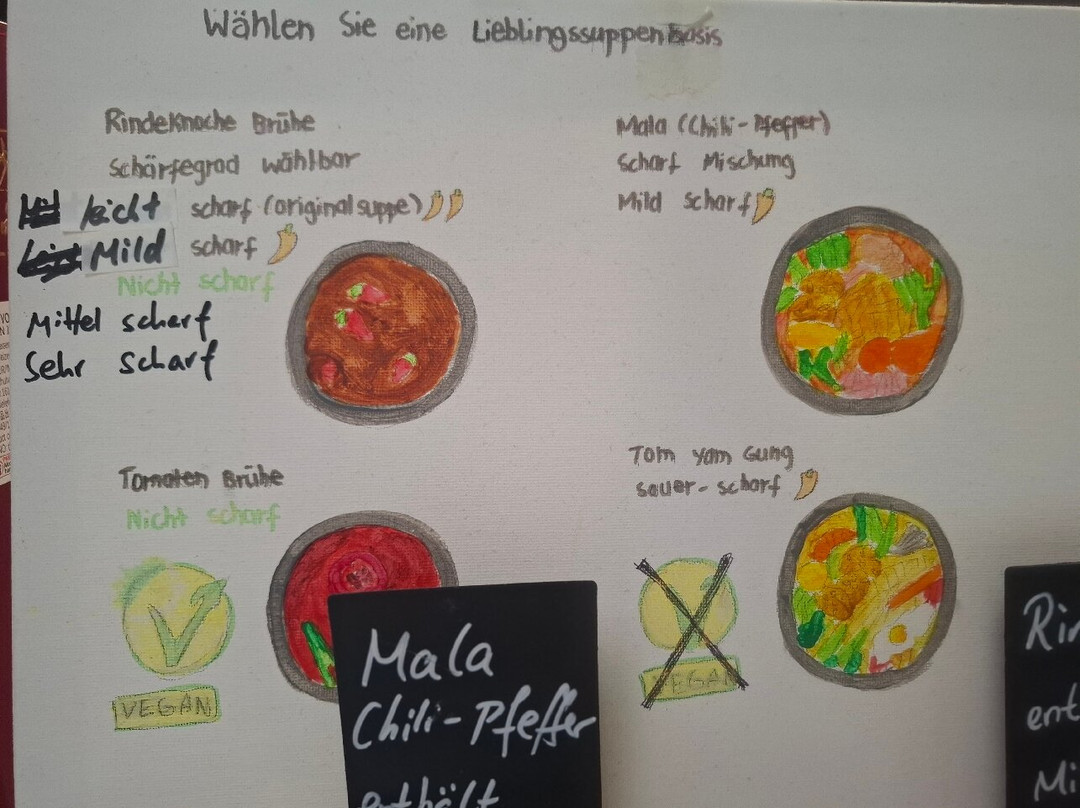 Wählen Sie eine Lieblingssuppenbasis
Rindeknoche Brühe
Schärfegrad wählbar
leicht scharf (original suppe)
Mild scharf
Nicht scharf
Mittel scharf
Sehr scharf
Mala (Chili-Pfeffer)
Scharf Mischung
Mild Scharf
Tomaten Brühe
Nicht scharf
VEGAN
Tom Yam Gung
sauer-scharf
VEGAN
Mala
Chili-Pfeffer
enthält
Rin
ent
Mi